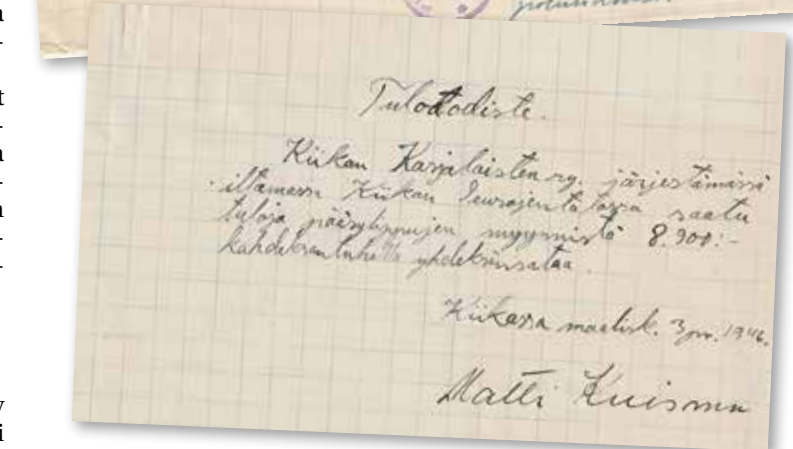 Tulotodiste.
Kiikan Karjalaisten ry. järjestämissä
iltamassa Kiikan Seurojentalossa saatu
tuloja pääsylippujen myynnistä 8.900:-
kahdeksantuhatta yhdeksänsataa.
Kiikassa maalisk. 3 pv. 1946.
Matti Kuisma